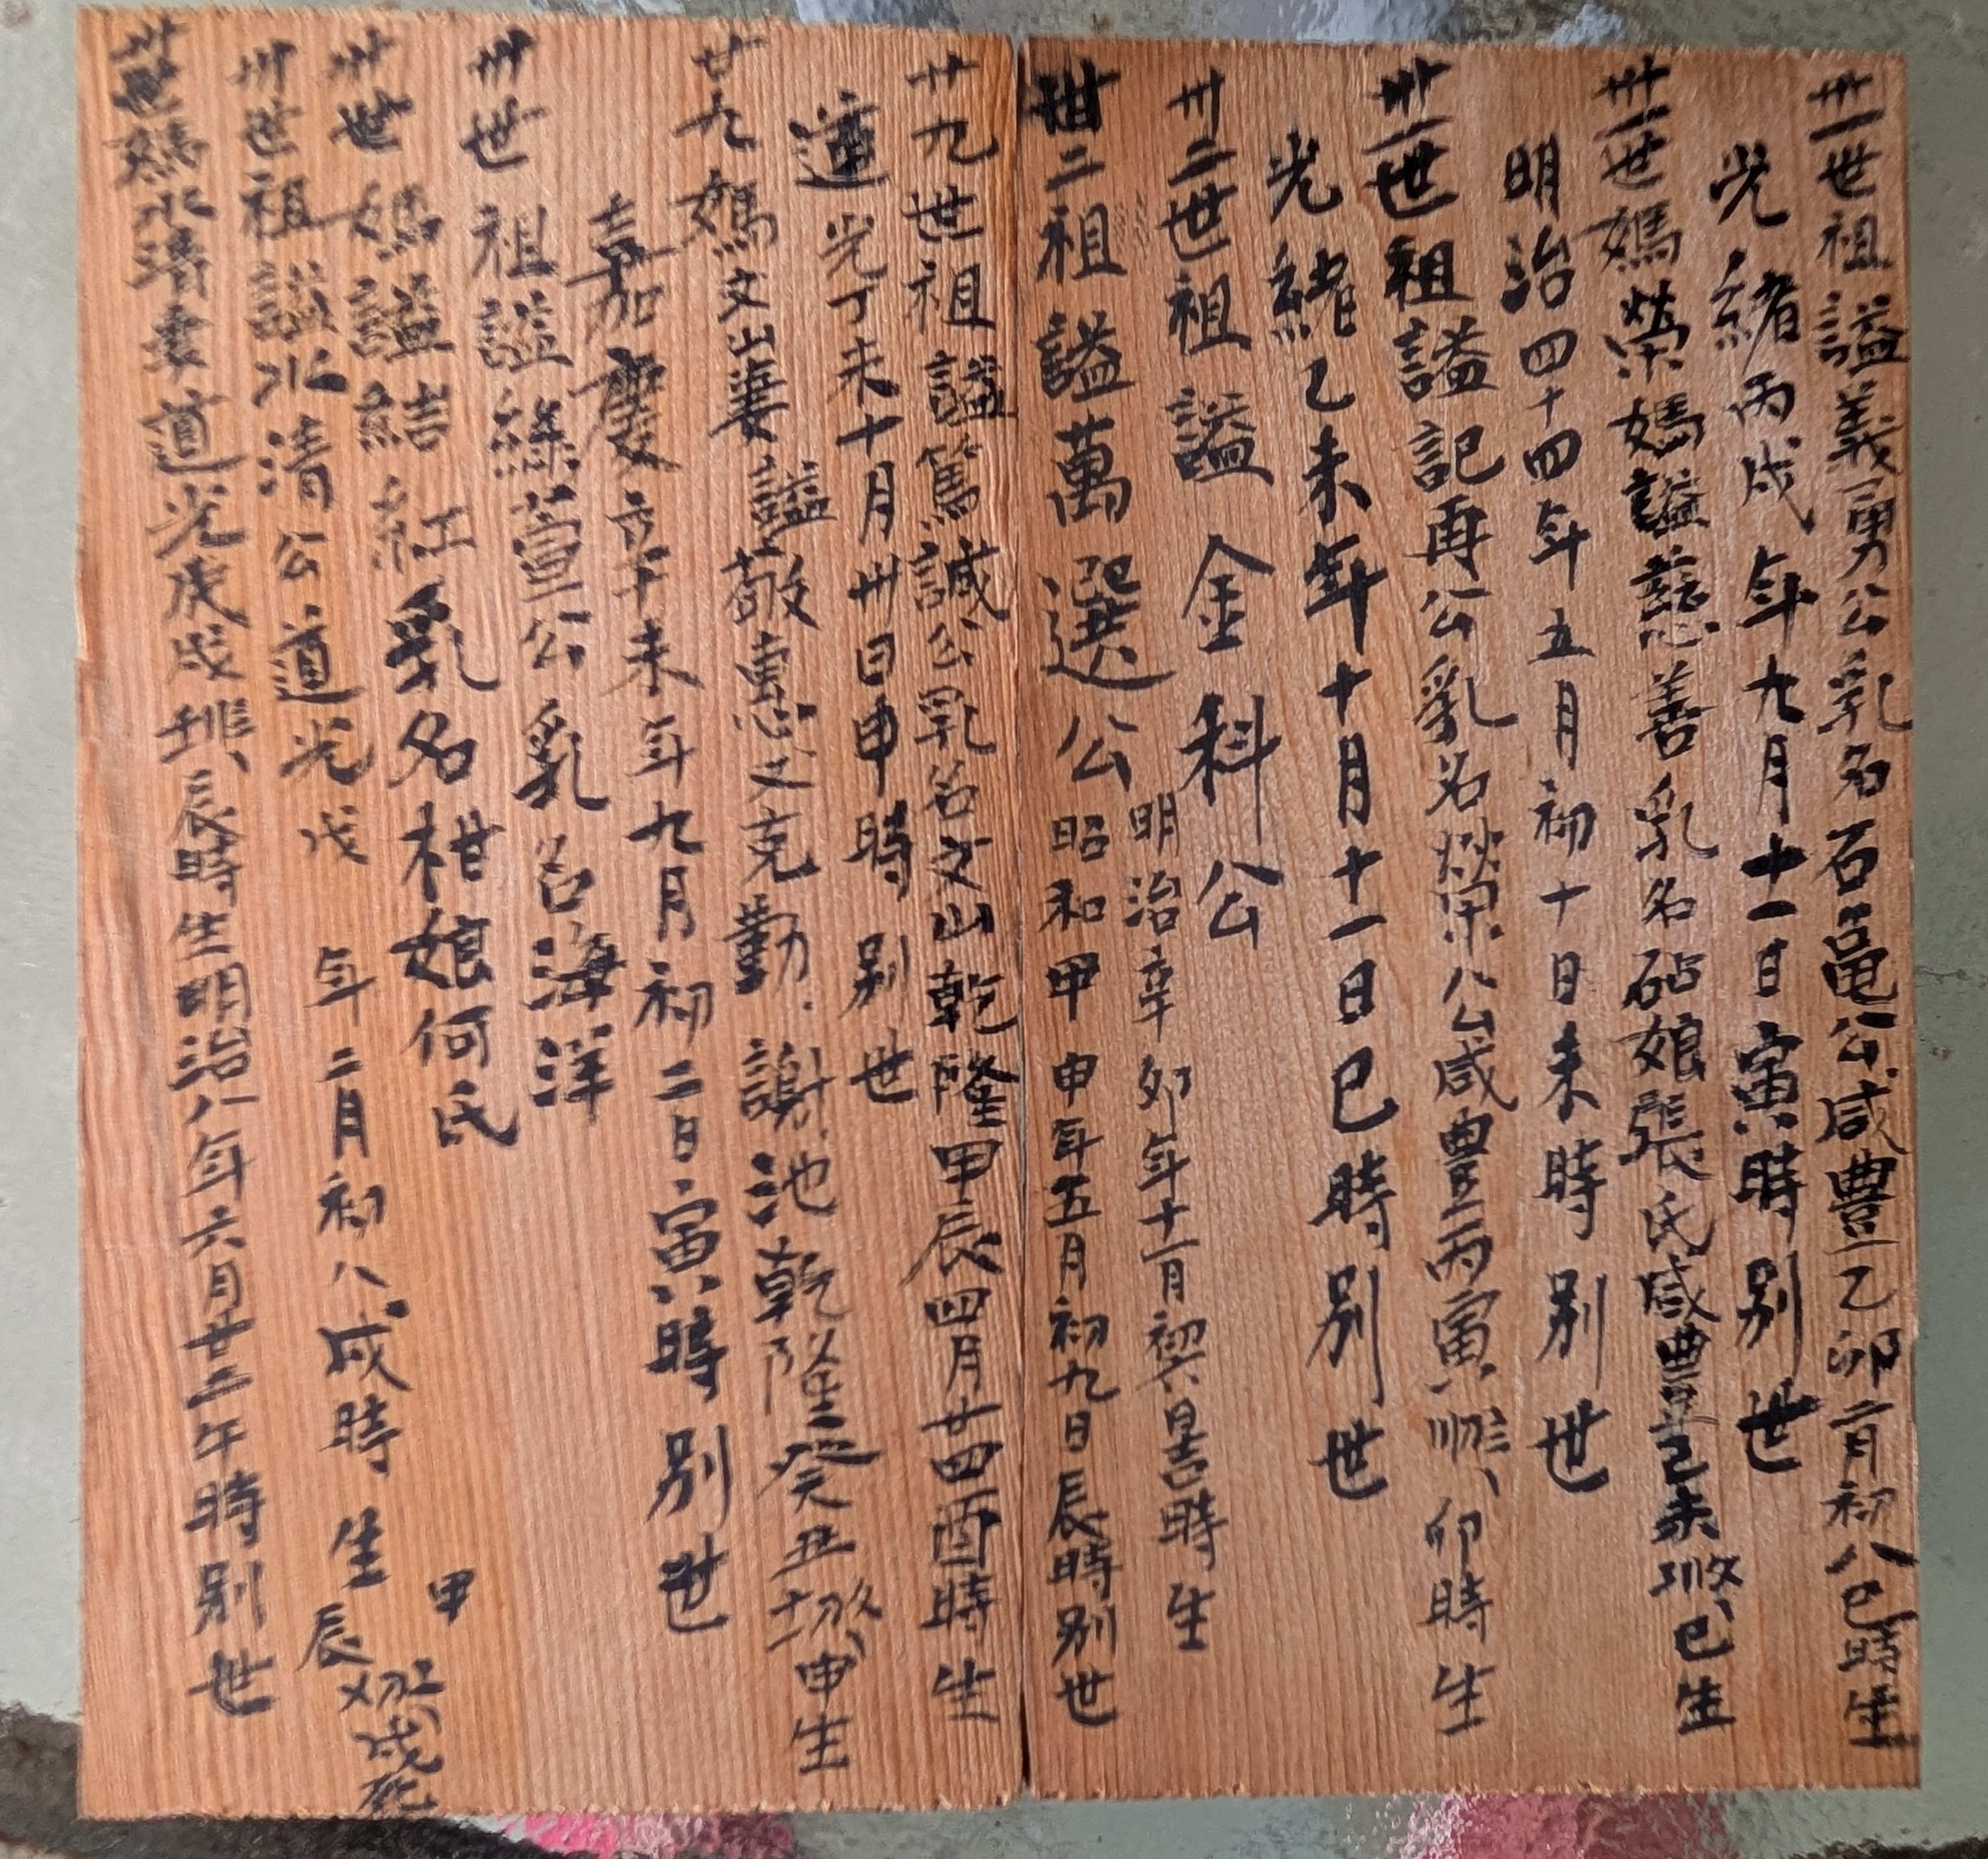 卅一世祖謚義勇公乳名石黽公咸豐乙卯二月初八巳時生
光緒丙戌年九月十一日寅時別世
卅一世媽榮媽謚慈善乳名砧娘張氏咸豐己未巳生
明治四十四年五月初十日未時別世
卅一世祖謚記再公乳名榮公咸豐丙寅卯時生
光緒乙未年十月十一日巳時別世
卅二世祖謚金科公
明治辛卯年十一月初六日時生
卅二祖謚萬選公昭和甲申年五月初九日辰時別世
廿九世祖謚篤誠公乳名文山乾隆甲辰四月廿四酉時生
道光丁未十月卅日申時別世
廿九媽文山妻謚敬惠又克勤謝池乾隆癸丑申生
嘉慶辛未年九月初二日寅時別世
卅世祖謚綠萱公乳名海洋
卅世媽謚結紅乳名柑娘何氏
卅世祖謚水清公道光戊年二月初八戌時生
甲辰戌死
卅世媽水清妻道光庚戌辰時生明治八年六月廿二午時別世